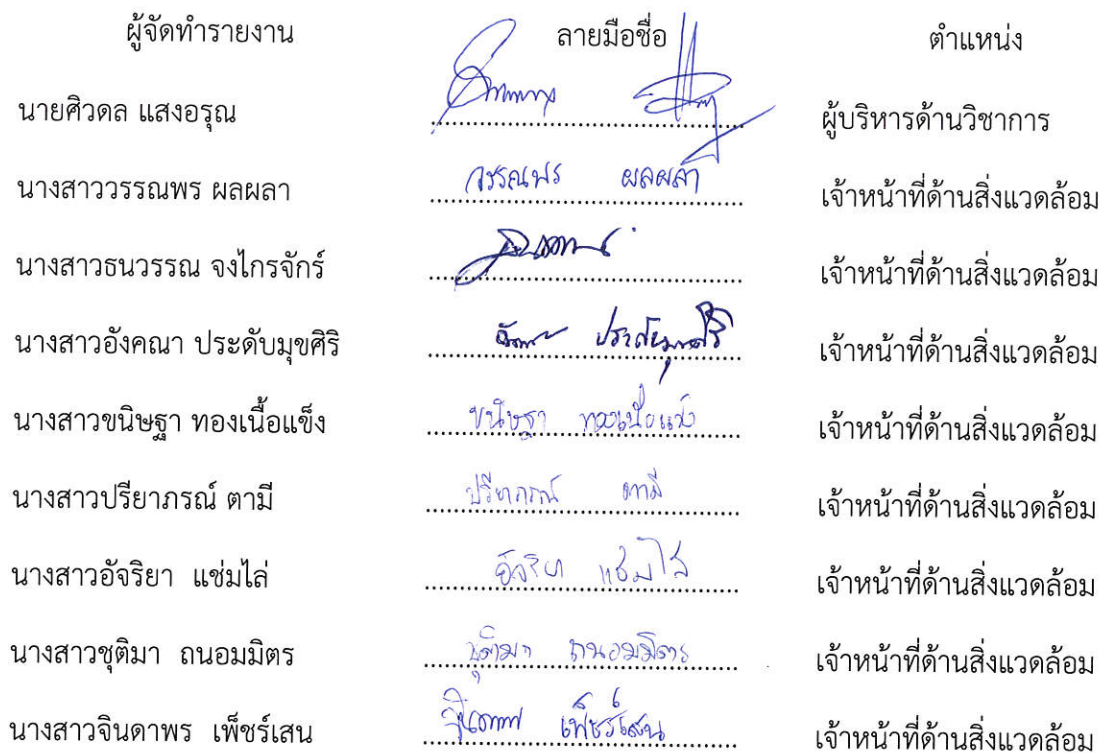 ผู้จัดทำรายงาน ลายมือชื่อ ตำแหน่ง
นายศิวดล แสงอรุณ ผู้บริหารด้านวิชาการ
นางสาววรรณพร ผลผลา วรรณพร ผลผลา เจ้าหน้าที่ด้านสิ่งแวดล้อม
นางสาวธนวรรณ จงไกรจักร์ เจ้าหน้าที่ด้านสิ่งแวดล้อม
นางสาวอังคณา ประดับมุขศิริ อังคณา ประดับมุขศิริ เจ้าหน้าที่ด้านสิ่งแวดล้อม
นางสาวขนิษฐา ทองเนื้อแข็ง ขนิษฐา ทองเนื้อแข็ง เจ้าหน้าที่ด้านสิ่งแวดล้อม
นางสาวปรียาภรณ์ ตามี ปรียาภรณ์ ตามี เจ้าหน้าที่ด้านสิ่งแวดล้อม
นางสาวอัจริยา แช่มไล่ อัจริยา แช่มไล่ เจ้าหน้าที่ด้านสิ่งแวดล้อม
นางสาวชุติมา ถนอมมิตร ชุติมา ถนอมมิตร เจ้าหน้าที่ด้านสิ่งแวดล้อม
นางสาวจินดาพร เพ็ชร์เสน จินดาพร เพ็ชร์เสน เจ้าหน้าที่ด้านสิ่งแวดล้อม